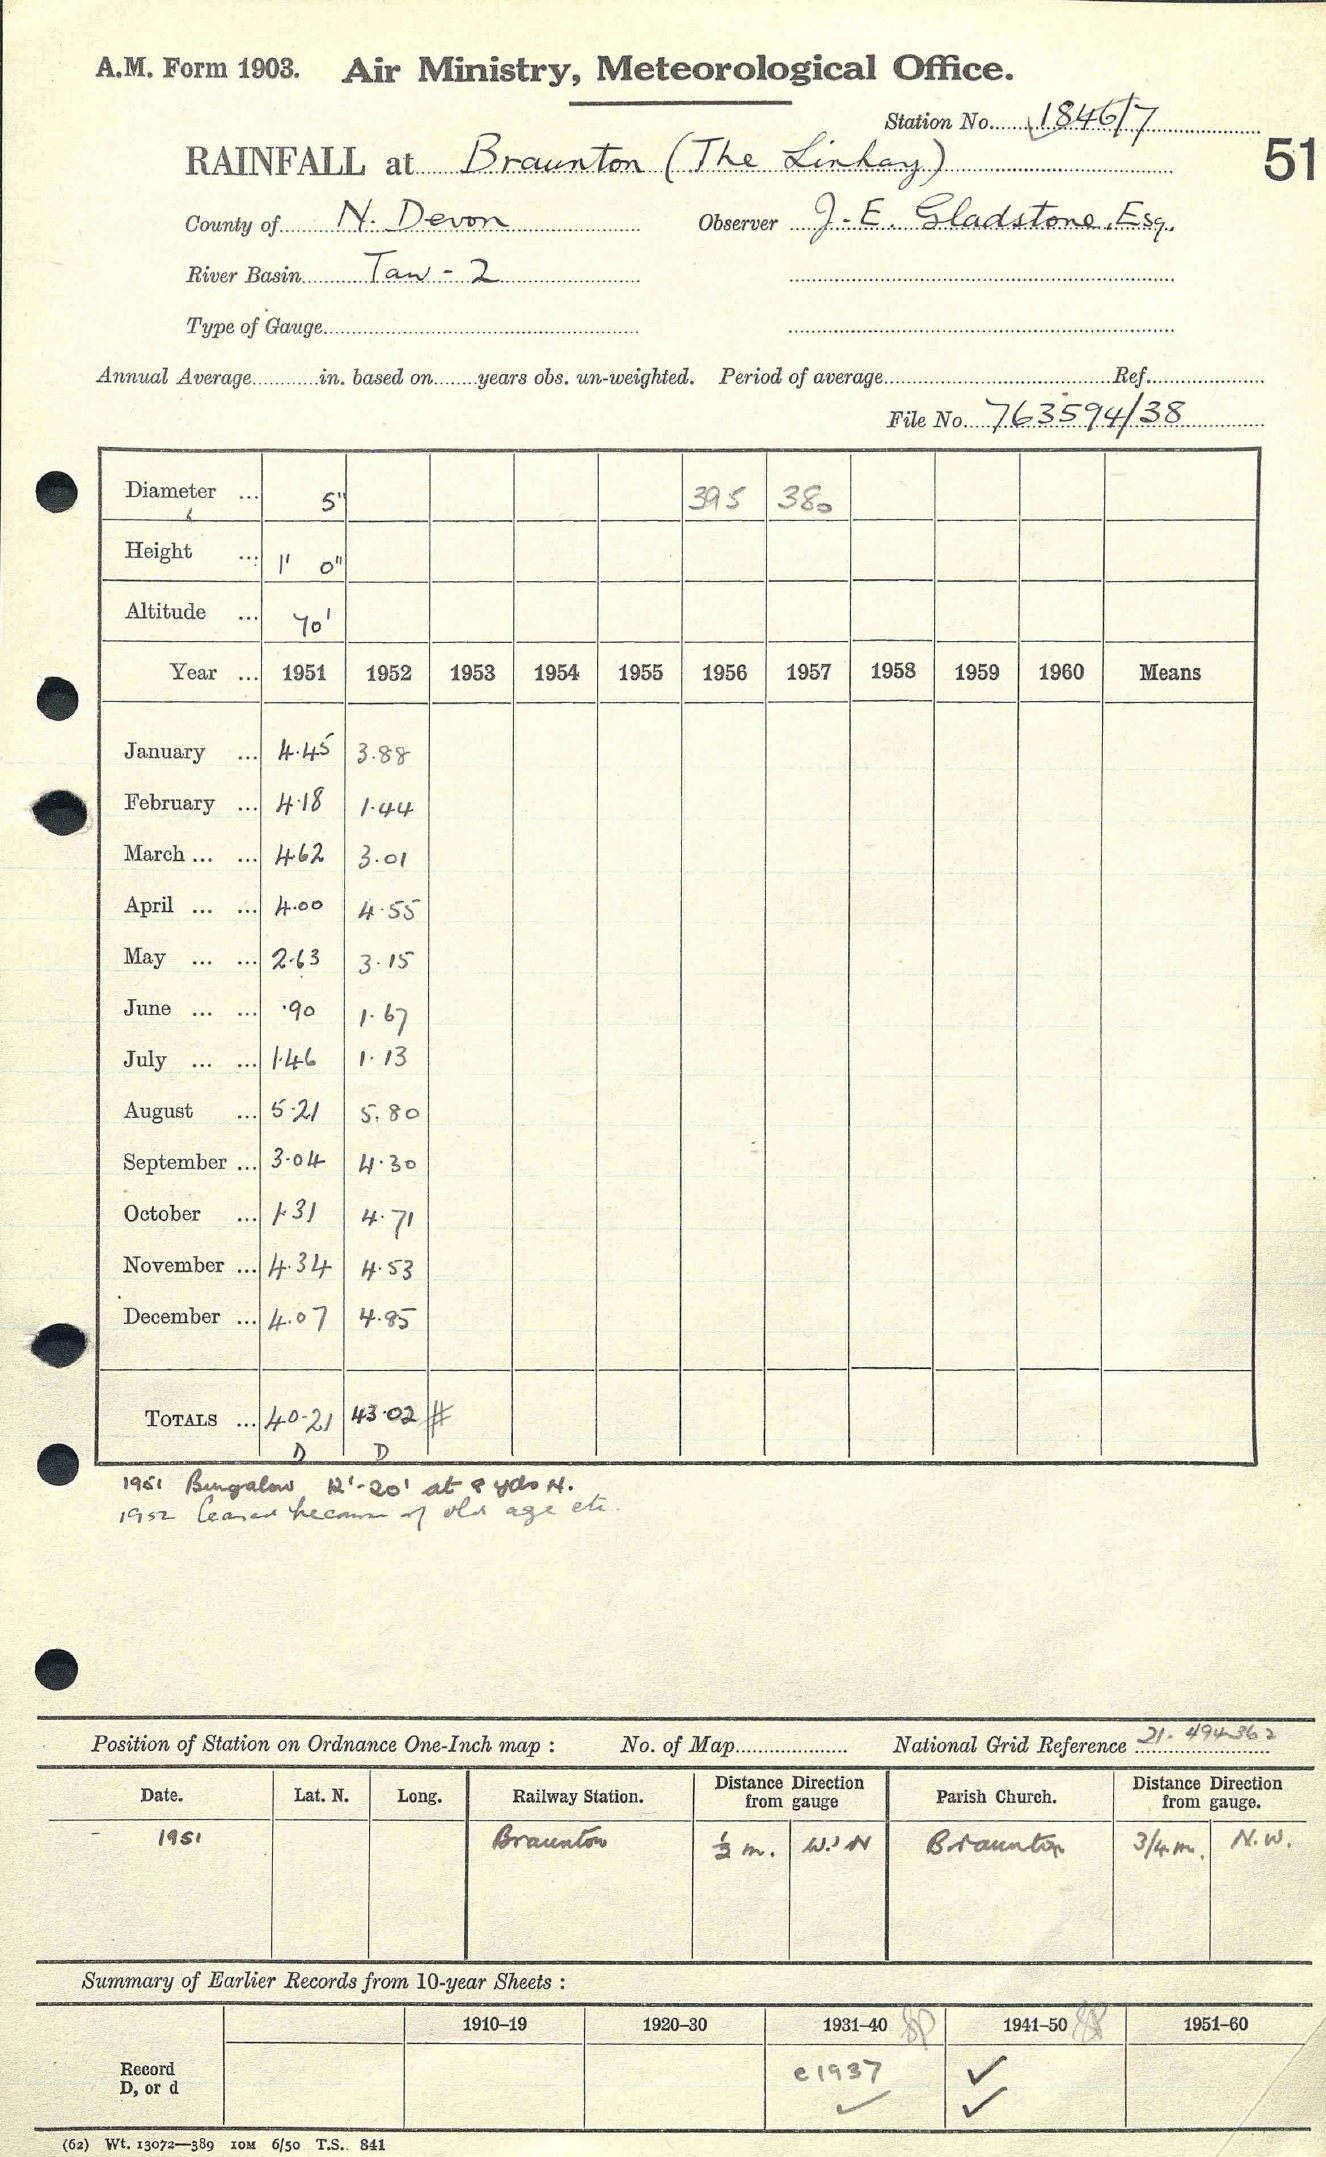 A.M. Form 1903. Air Ministry, Meteorological Office.
Station No. 1846/7
RAINFALL at Braunton (The Linhay)
51
County of N. Devon Observer J. E. Gladstone, Esq.
River Basin Taw - 2
Type of Gauge
Annual Average in. based on years obs. un-weighted. Period of average Ref.
File No. 763594/38
Diameter ... 5" 395 380
Height ... 1' 0"
Altitude ... 70'
Year ... 1951 1952 1953 1954 1955 1956 1957 1958 1959 1960 Means
January ... 4.45 3.88
February ... 4.18 1.44
March ... ... 4.62 3.01
April ... ... 4.00 4.55
May ... ... 2.63 3.15
June ... ... .90 1.67
July ... ... 1.46 1.13
August ... 5.21 5.80
September ... 3.04 4.30
October ... 1.31 4.71
November ... 4.34 4.53
December ... 4.07 4.85
TOTALS ... 40.21 43.02 #
D D
1951 Bungalow 12'-20' at 8 yds N.
1952 Ceased because of old age etc.
Position of Station on Ordnance One-Inch map : No. of Map National Grid Reference 21. 494362
Date. Lat. N. Long. Railway Station. Distance Direction from gauge Parish Church. Distance Direction from gauge.
1951 Braunton ½ m. W.'N Braunton 3/4 m. N.W.
Summary of Earlier Records from 10-year Sheets :
1910–19 1920–30 1931–40 1941–50 1951–60
Record D, or d c1937 ✓ ✓ ✓
(62) Wt. 13072—389 10M 6/50 T.S. 841